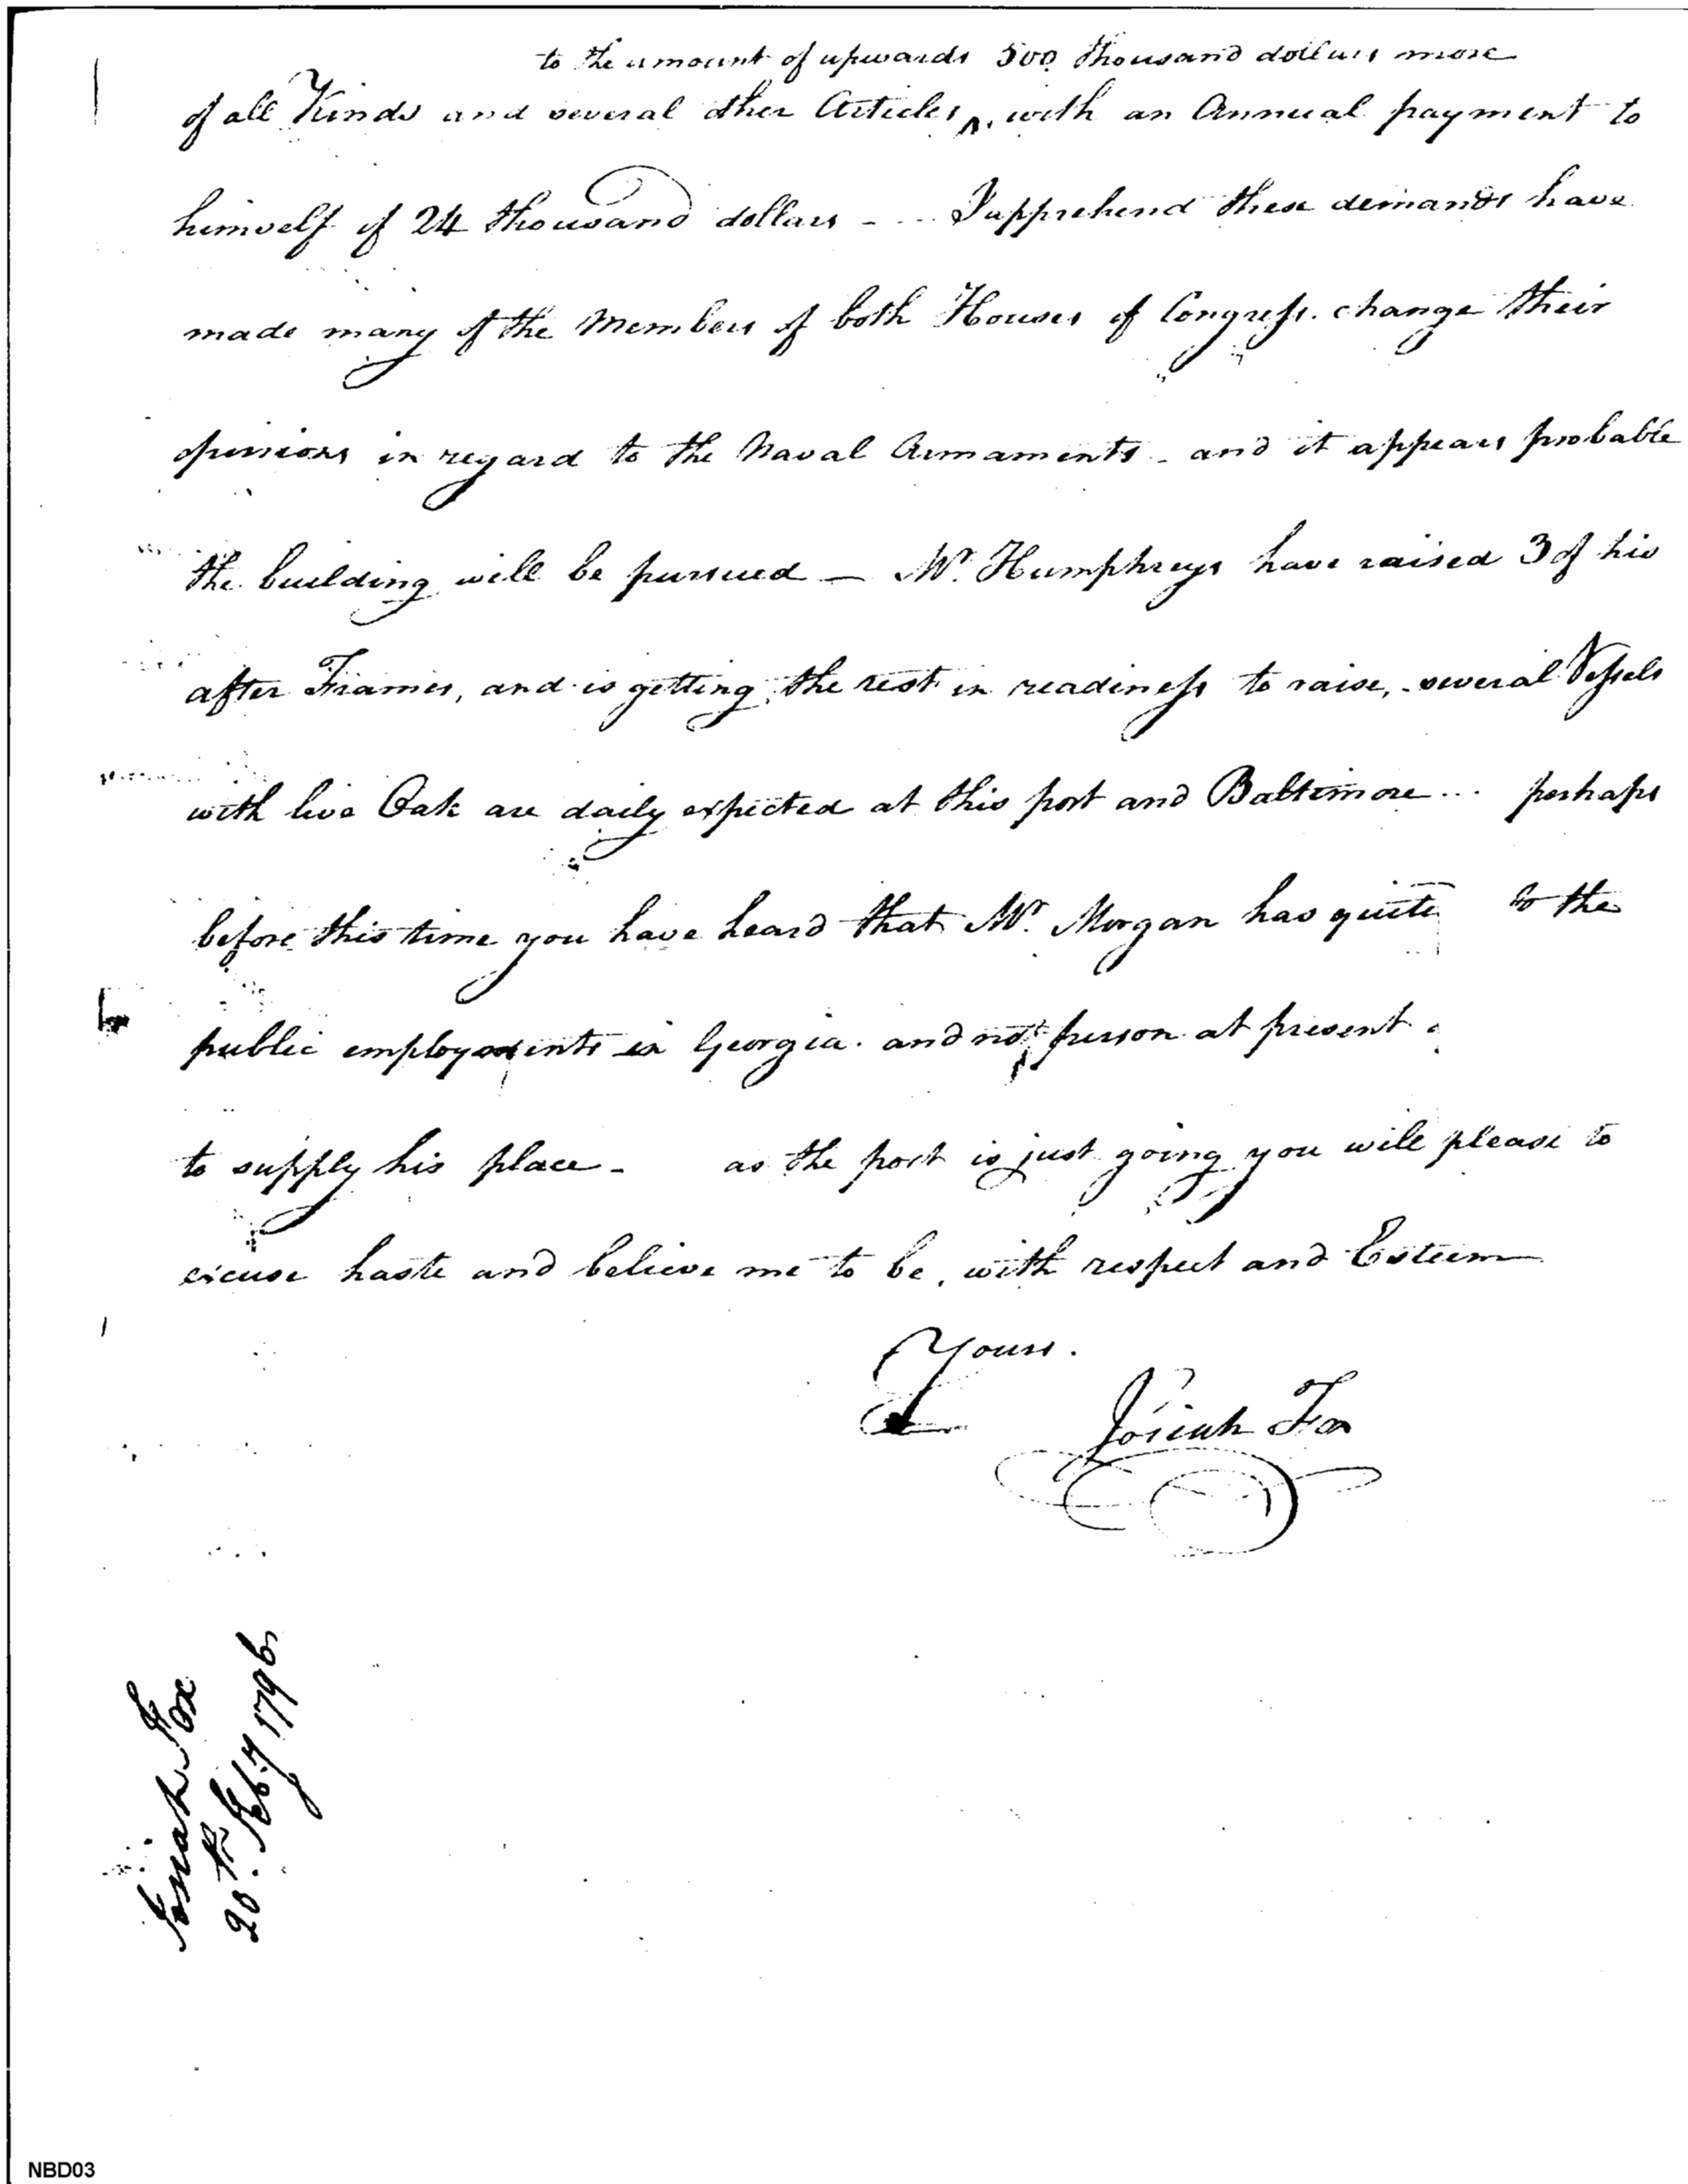 to the amount of upwards 500 thousand dollars more
of all Kinds and several other Articles ^ with an Annual payment to
himself of 24 thousand dollars - - I apprehend these demands have
made many of the Members of both Houses of Congress. change their
opinions in regard to the Naval Armaments - and it appears probable
the building will be pursued — Mr. Humphreys have raised 3 of his
after Frames, and is getting the rest in readiness to raise, - several Vessels
with live Oak are daily expected at this port and Baltimore ... perhaps
before this time you have heard that Mr. Morgan has quite to the
public employments in Georgia. and not person at present
to supply his place - as the post is just going you will please to
excuse haste and believe me to be, with respect and Esteem
Yours.
Josiah Fox
Josiah Fox
20th. Feby 1796
NBD03